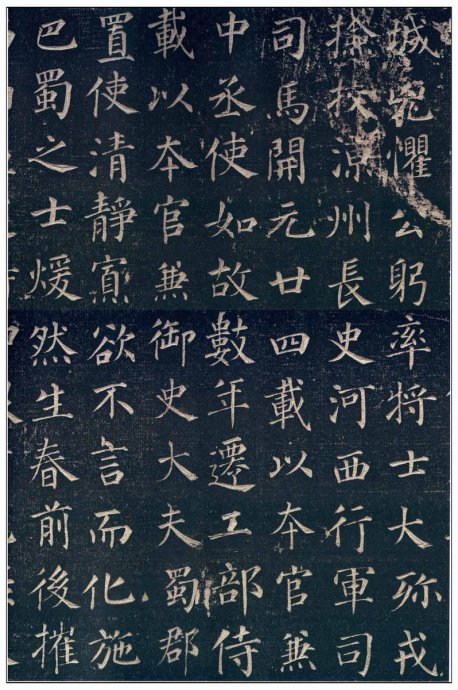 城兇懼公躬率将士大殄戎
檢校涼州長史河西行軍司
司馬開元廿四載以本官兼
中丞使如故數年遷工部侍
載以本官兼御史大夫蜀郡
置使清靜寘欲不言而化施
巴蜀之士煖然生春前後摧